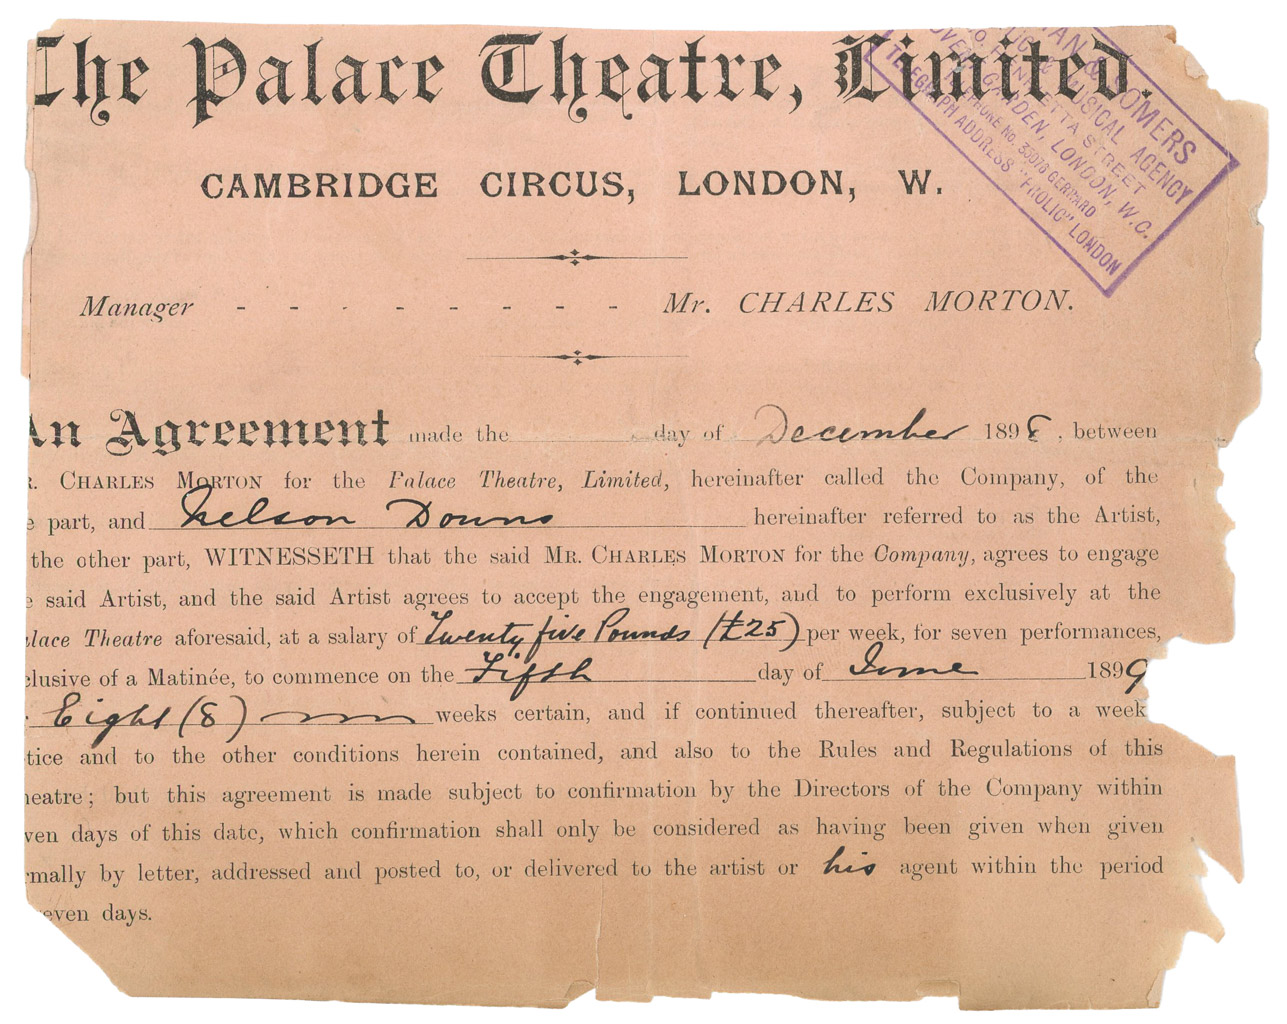 The Palace Theatre, Limited.
CAMBRIDGE CIRCUS, LONDON, W.
Manager - - - - - - - - Mr. CHARLES MORTON.
An Agreement made the day of December 1898, between
R. CHARLES MORTON for the Palace Theatre, Limited, hereinafter called the Company, of the
e part, and Nelson Downs hereinafter referred to as the Artist,
the other part, WITNESSETH that the said MR. CHARLES MORTON for the Company, agrees to engage
e said Artist, and the said Artist agrees to accept the engagement, and to perform exclusively at the
alace Theatre aforesaid, at a salary of Twenty five Pounds (£25) per week, for seven performances,
clusive of a Matinée, to commence on the Fifth day of June 1899
Eight (8) weeks certain, and if continued thereafter, subject to a week
tice and to the other conditions herein contained, and also to the Rules and Regulations of this
heatre; but this agreement is made subject to confirmation by the Directors of the Company within
ven days of this date, which confirmation shall only be considered as having been given when given
rmally by letter, addressed and posted to, or delivered to the artist or his agent within the period
even days.
MAN & SOMERS
MUSICAL AGENCY
HENRIETTA STREET
COVENT GARDEN, LONDON, W.C.
PHONE No. GERRARD
TELEGRAPH ADDRESS "FROLIC" LONDON